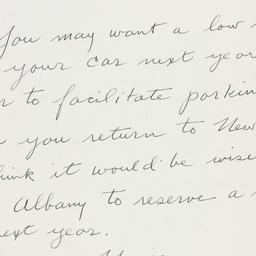 You may want a low
your car next year
to facilitate parkin
you return to New
think it would be wise
Albany to reserve a
next year.